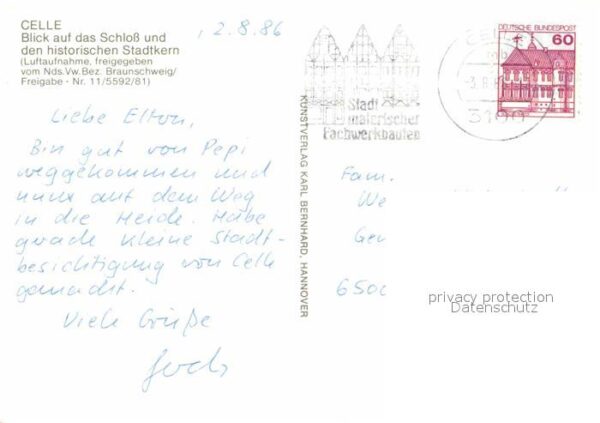 CELLE
Blick auf das Schloß und
den historischen Stadtkern
(Luftaufnahme, freigegeben
vom Nds.Vw.Bez. Braunschweig/
Freigabe - Nr. 11/5592/81)
2.8.86
Liebe Eltern,
Bin gut von Pepi
weggekommen und
nun auf dem Weg
in die Heide. Habe
gerade kleine Stadt-
besichtigung von Celle
gemacht.
Viele Grüße
KUNSTVERLAG KARL BERNHARD, HANNOVER
Stadt
malerischer
Fachwerkbauten
DEUTSCHE BUNDESPOST
60
CELLE
3100
Fam.
We
Ger
6500
privacy protection
Datenschutz